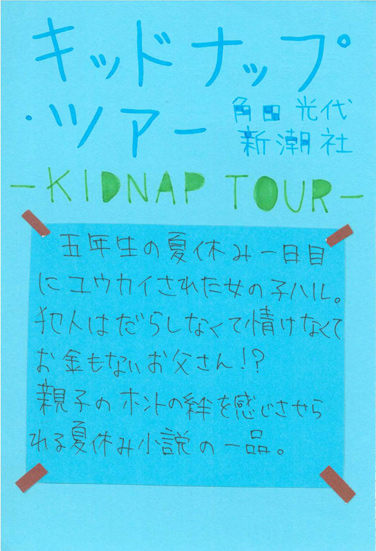 キッドナップ
・ツアー
角田光代
新潮社
-KIDNAP TOUR-
五年生の夏休み一日目
にユウカイされた女の子ハル。
犯人はだらしなくて情けなくて
お金もないお父さん!?
親子のホントの絆を感じさせら
れる夏休み小説の一品。